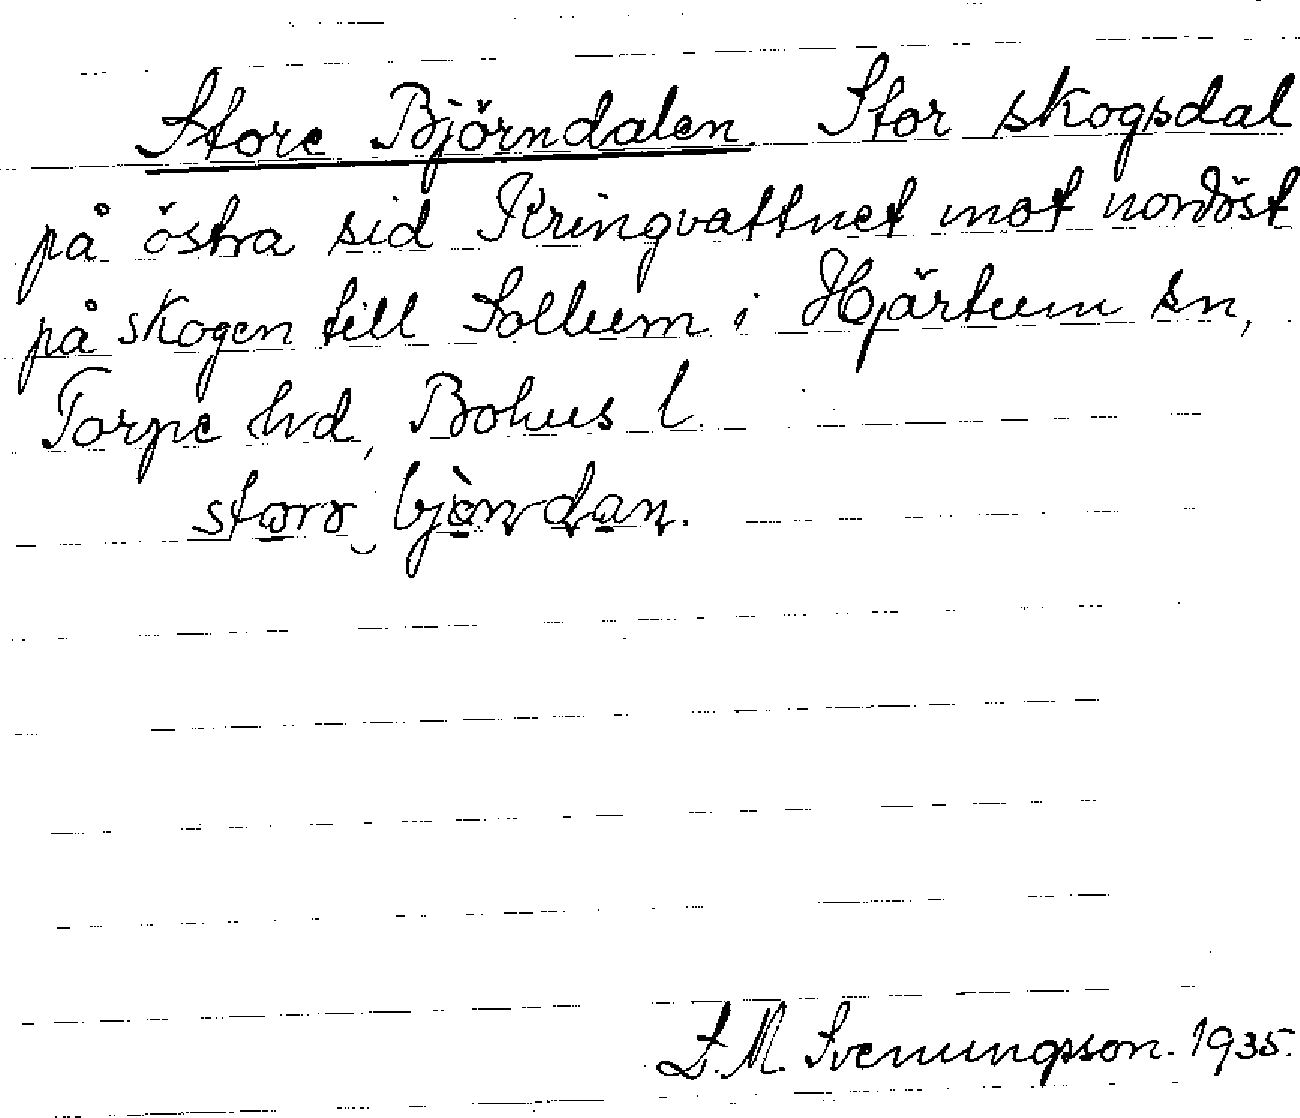 Store Björndalen. Stor skogsdal
på östra sid Kringvattnet mot nordöst
på skogen till Sollum i Hjärtum sn,
Torpe hd, Bohus l.
L. M. Svenungsson. 1935.